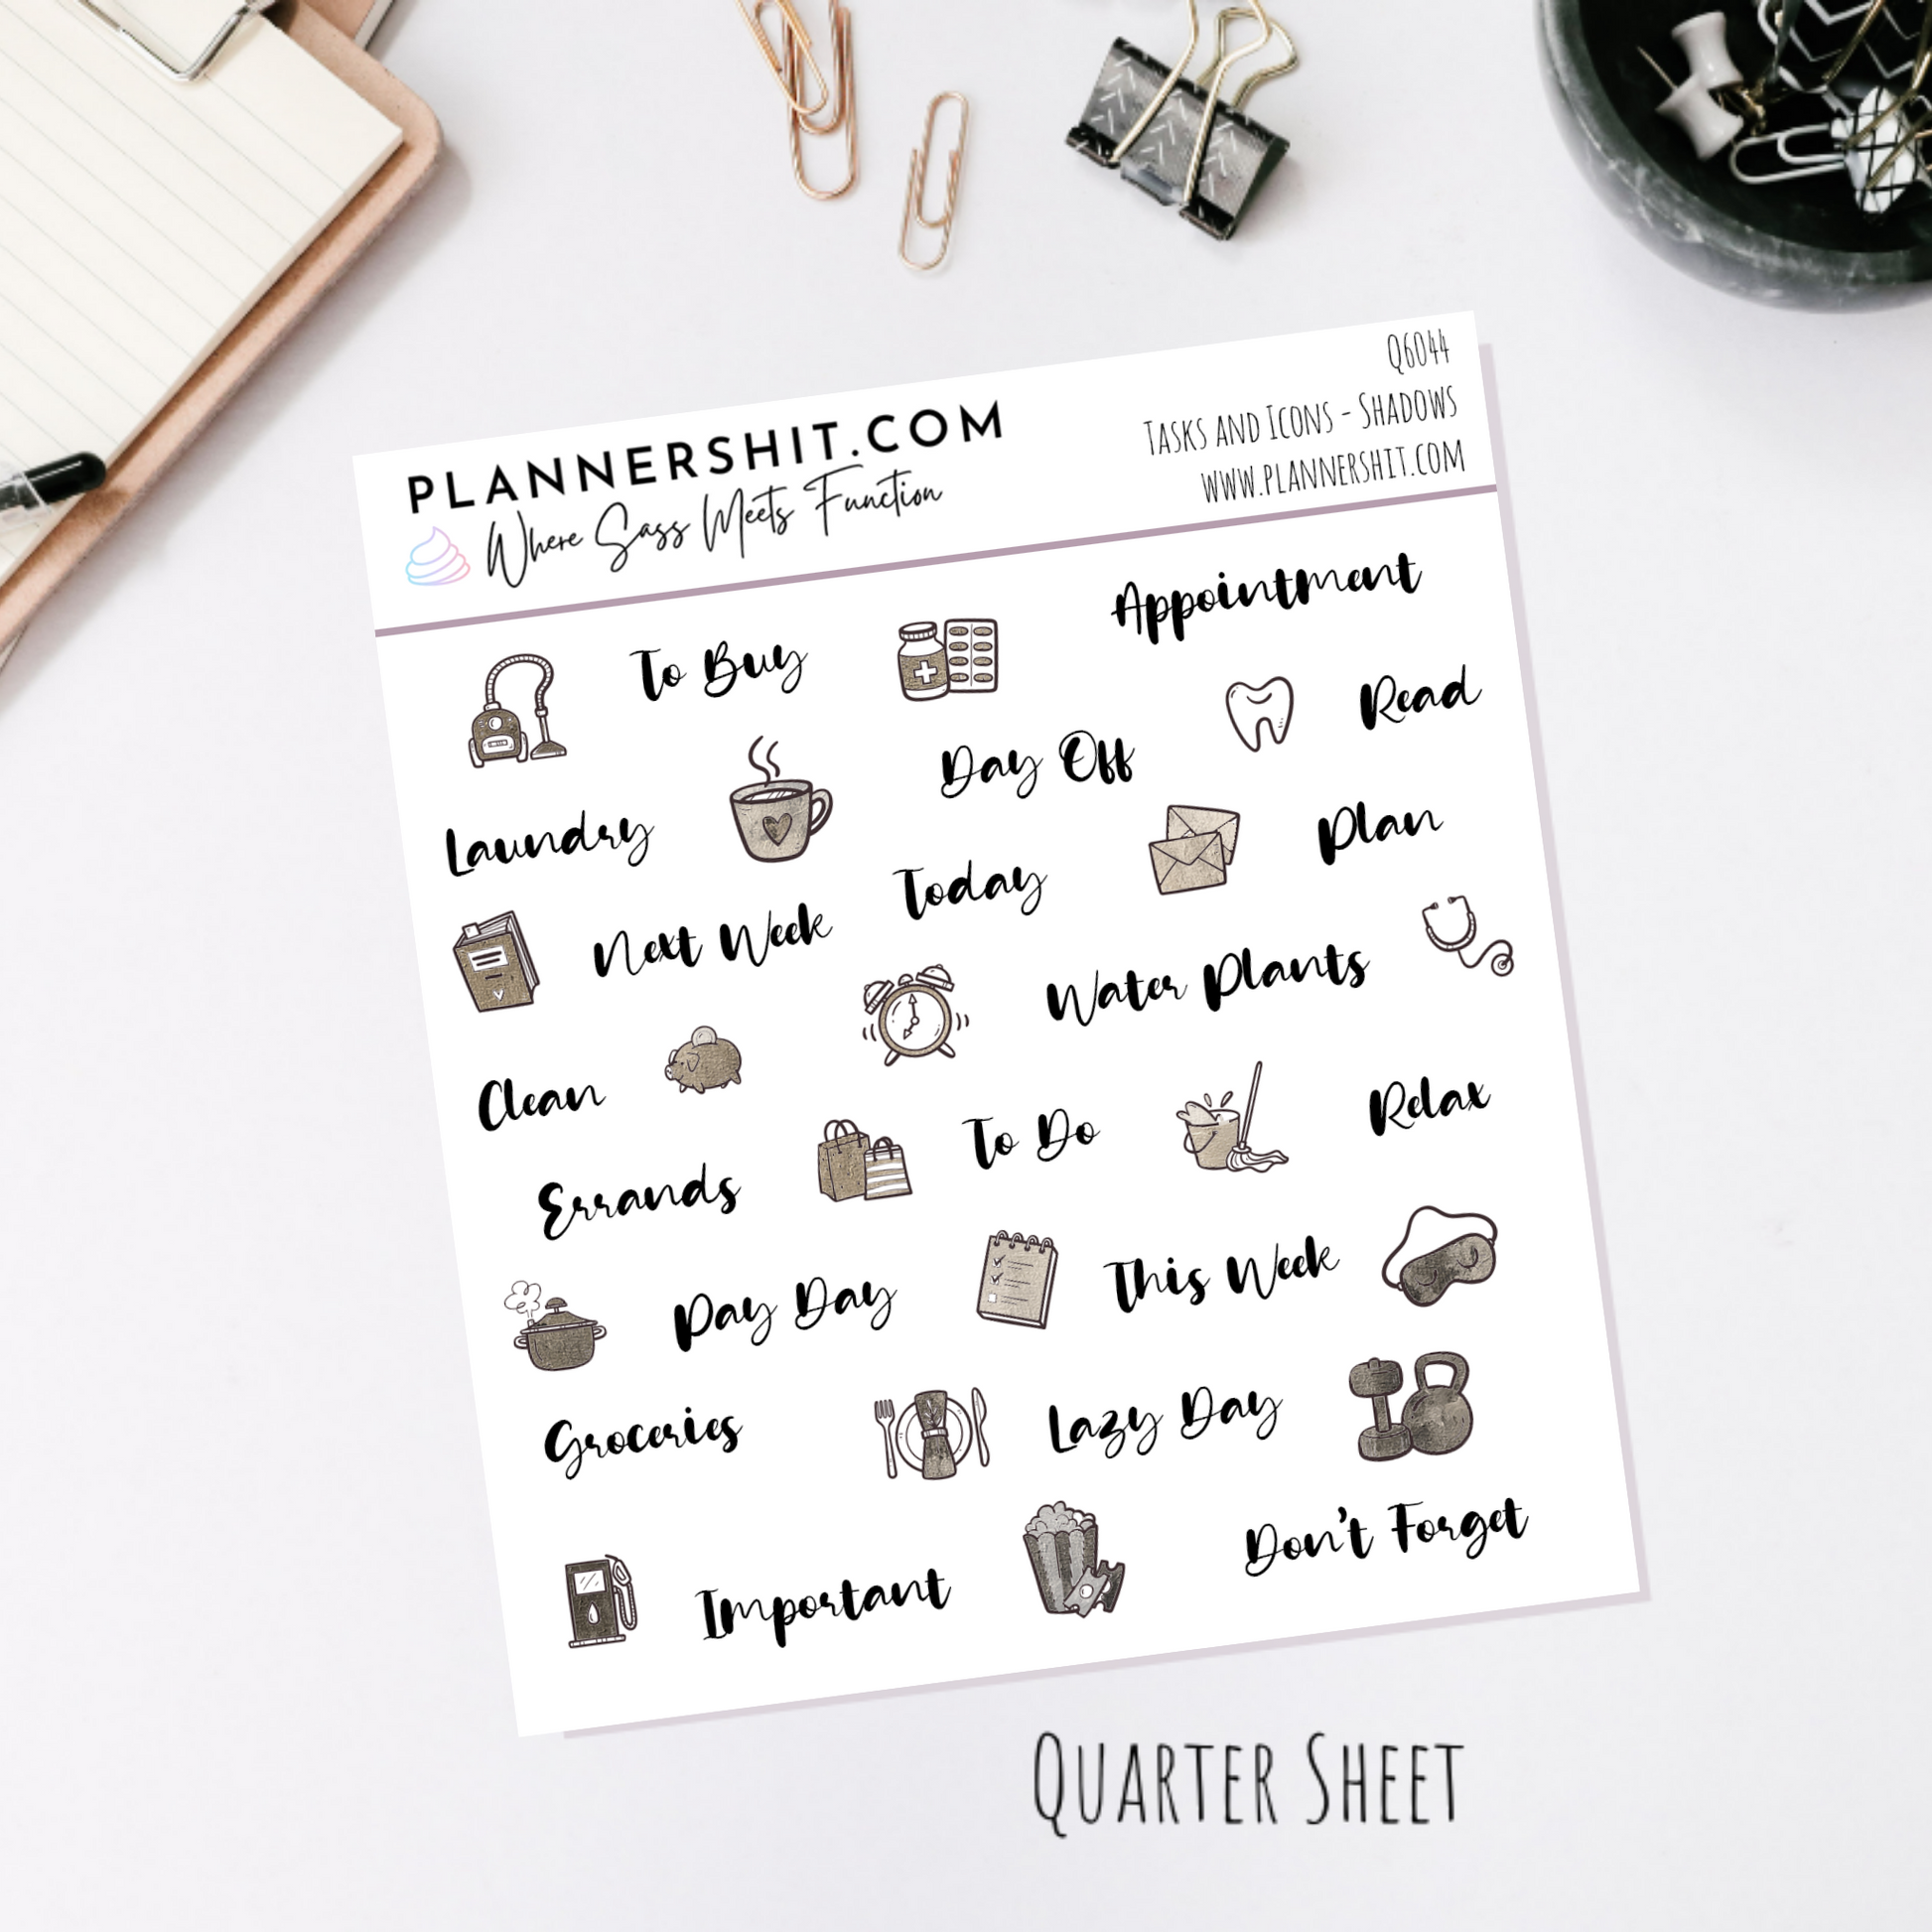 PLANNERSHIT.COM
Where Sass Meets Function
Q6044
Tasks and Icons - Shadows
www.plannershit.com
To Buy
Appointment
Read
Day Off
Laundry
Plan
Today
Next Week
Water Plants
Clean
To Do
Relax
Errands
This Week
Pay Day
Lazy Day
Groceries
Don't Forget
Important
Quarter Sheet